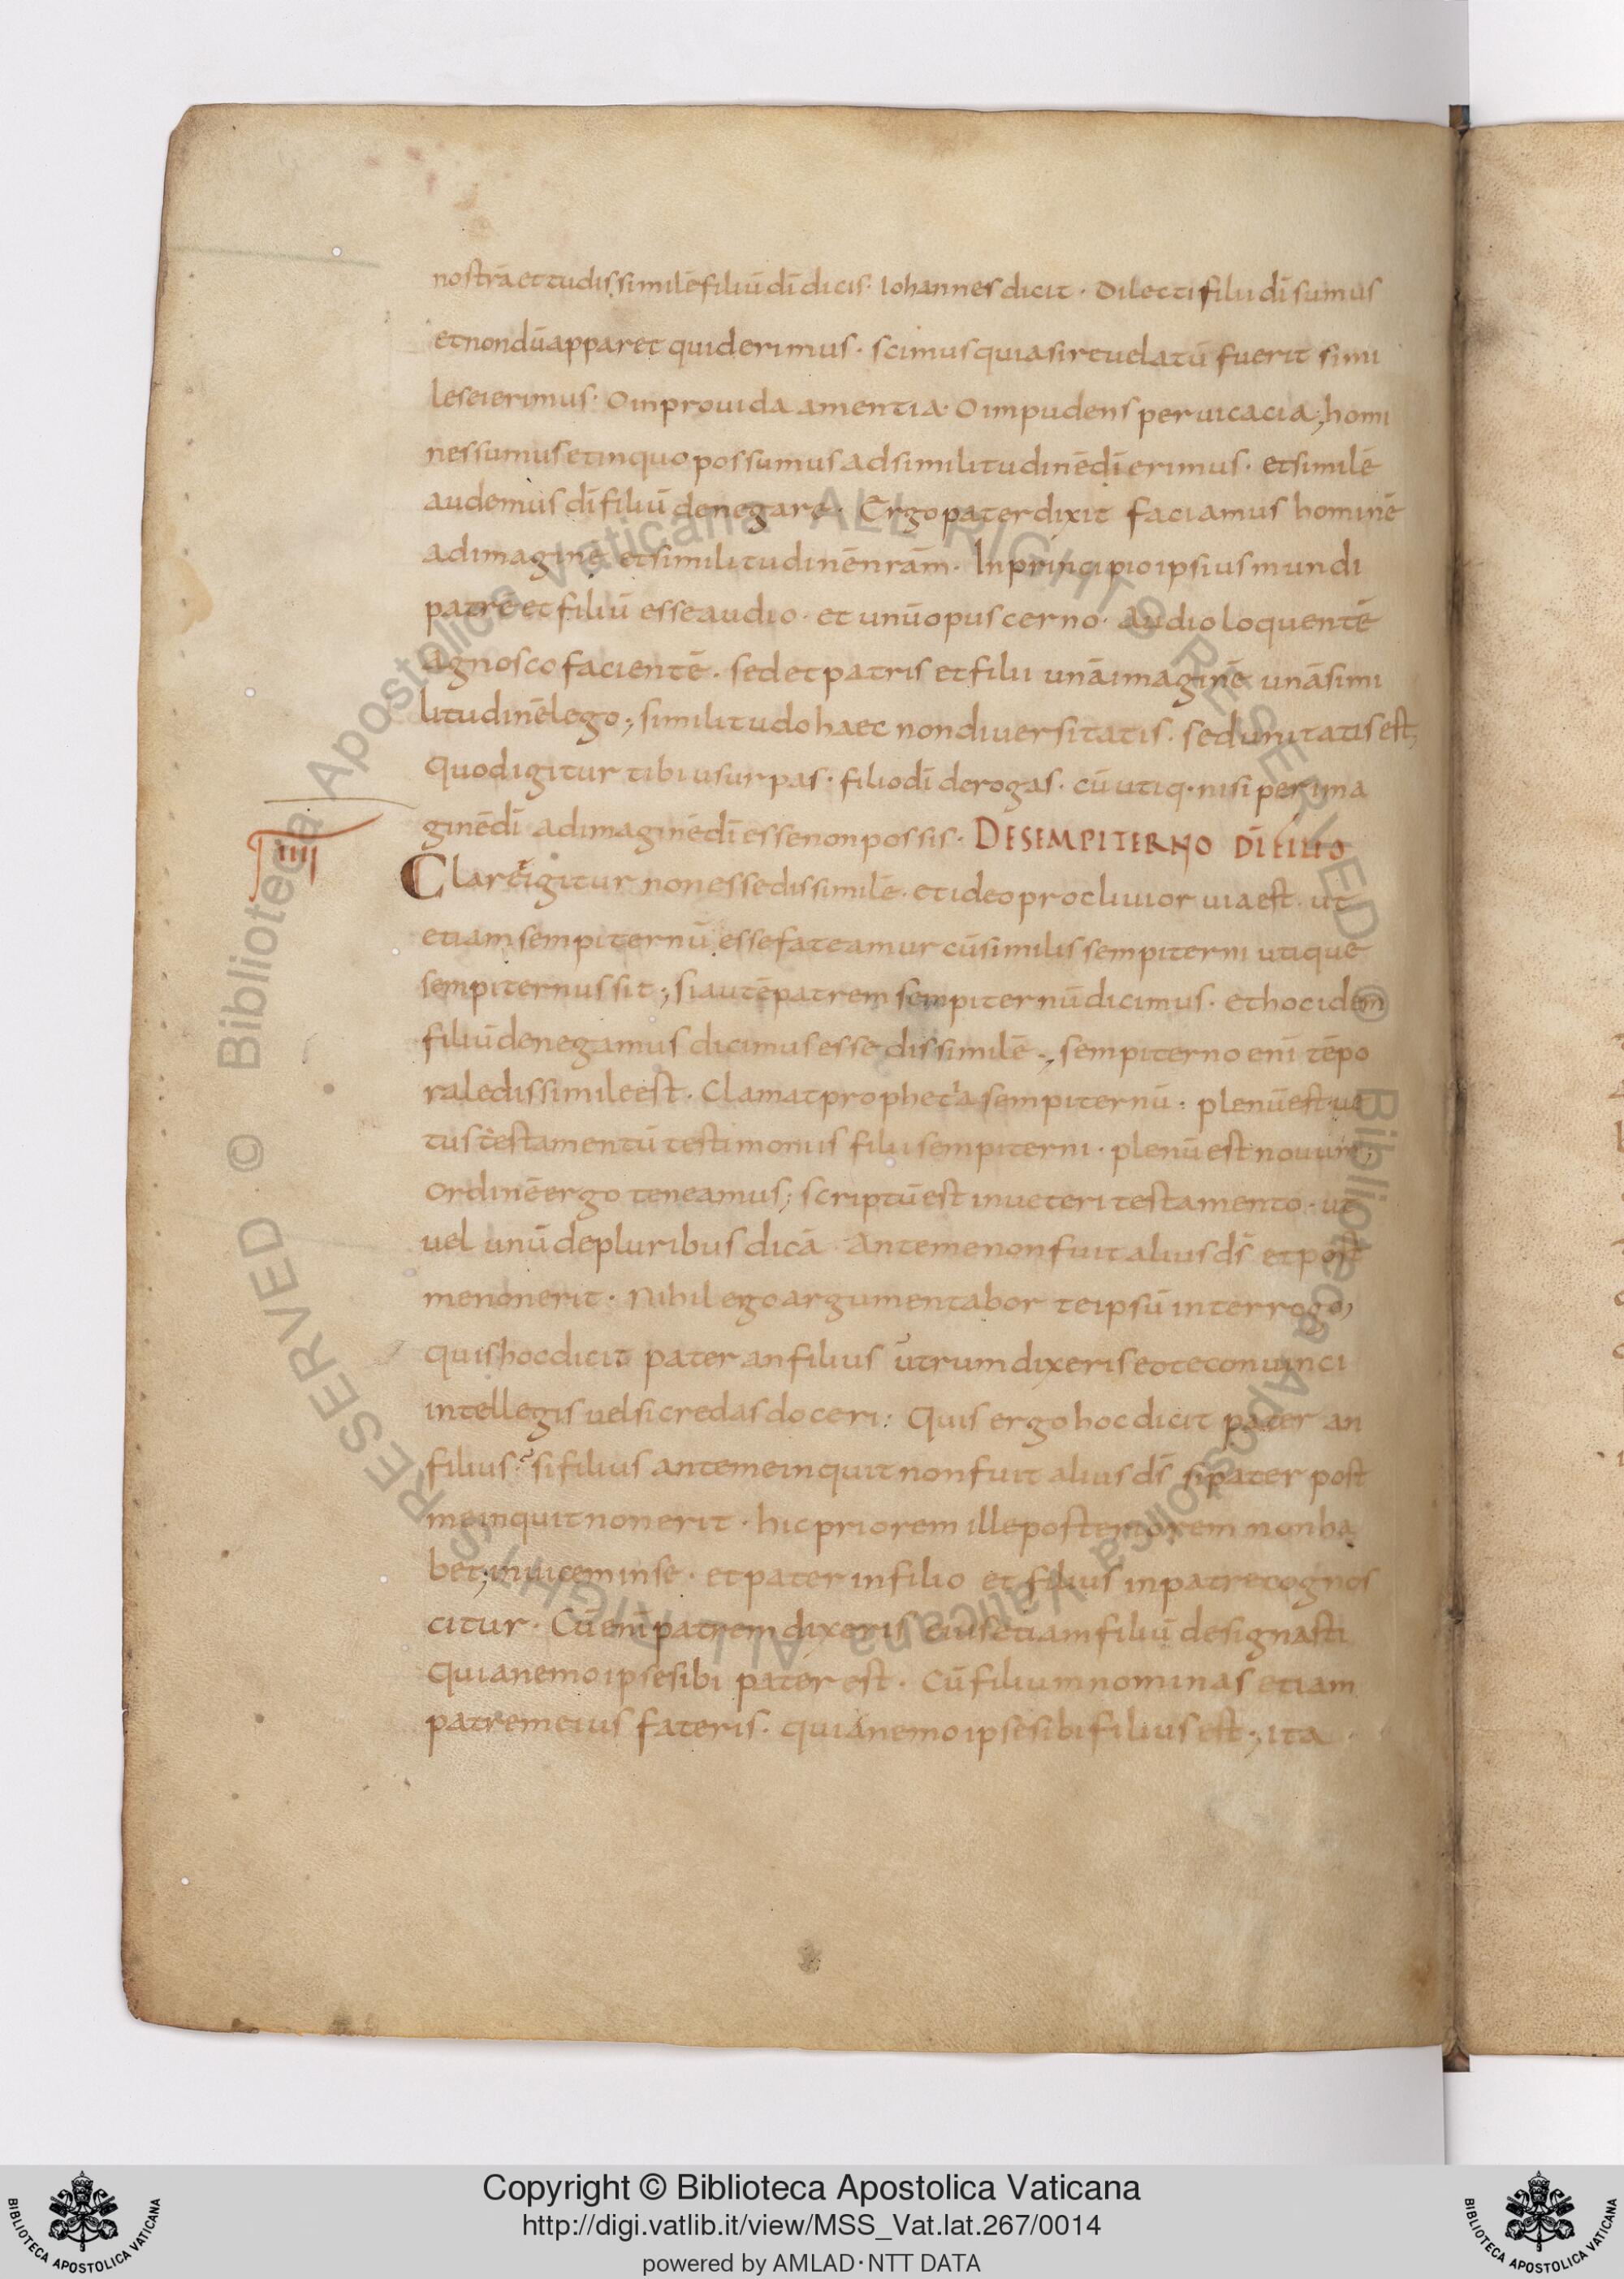 nostrā et tu dissimilē filiū dī dicis · Iohannes dicit · Dilecti filii dī sumus
et nondū apparet quid erimus · scimus quia si revelatū fuerit simi
les ei erimus · O inprovida amentia · O impudens pervicacia ; homi
nes sumus et in quo possumus ad similitudinē dī erimus · et similē
audemus dī filiū denegare · Ergo pater dixit faciamus hominē
ad imaginē et similitudinē nrām · In principio ipsius mundi
patrē et filiū esse audio · et unū opus cerno · audio loquentē
agnosco facientē · sed et patris et filii unā imaginē unā simi
litudinē lego ; similitudo haec non diversitatis · sed unitatis est ;
Quod igitur tibi usurpas · filio dī derogas · cū utiq · nisi per ima
ginē dī ad imaginē dī esse non possis · DE SEMPITERNO DĪ FILIO
IIII
Claret igitur non esse dissimilē · et ideo proclivior via est · ut
etiam sempiternū esse fateamur cū similis sempiterni utique
sempiternus sit ; si autē patrem sempiternū dicimus · et hoc idem
filiū denegamus dicimus esse dissimilē ·, sempiterno enī tēpo
rale dissimile est · Clamat propheta sempiternū · plenū est ve
tus testamentū testimoniis filii sempiterni · plenū est novum ;
Ordinē ergo teneamus ; scriptū est in veteri testamento · ut
vel unū de pluribus dicā · Ante me non fuit alius ds̄ et post
me non erit · Nihil ego argumentabor te ipsū interrogo ,
quis hoc dicit pater an filius utrum dixeris eo te convinci
intellegis vel si credas doceri : Quis ergo hoc dicit pater an
filius ? si filius ante me inquit non fuit alius ds̄ si pater post
me inquit non erit · hic priorem ille posteriorem non ha
bet ; invicem in se · et pater in filio et filius in patre cognos
citur · Cū enī patrem dixeris eius etiam filiū designasti
quia nemo ipse sibi pater est · Cū filium nominas etiam
patrem eius fateris · quia nemo ipse sibi filius est ·, ita
Biblioteca Apostolica Vaticana ALL RIGHTS RESERVED ©
Biblioteca Apostolica Vaticana ALL RIGHTS RESERVED ©
BIBLIOTECA APOSTOLICA VATICANA
Copyright © Biblioteca Apostolica Vaticana
http://digi.vatlib.it/view/MSS_Vat.lat.267/0014
powered by AMLAD · NTT DATA
BIBLIOTECA APOSTOLICA VATICANA